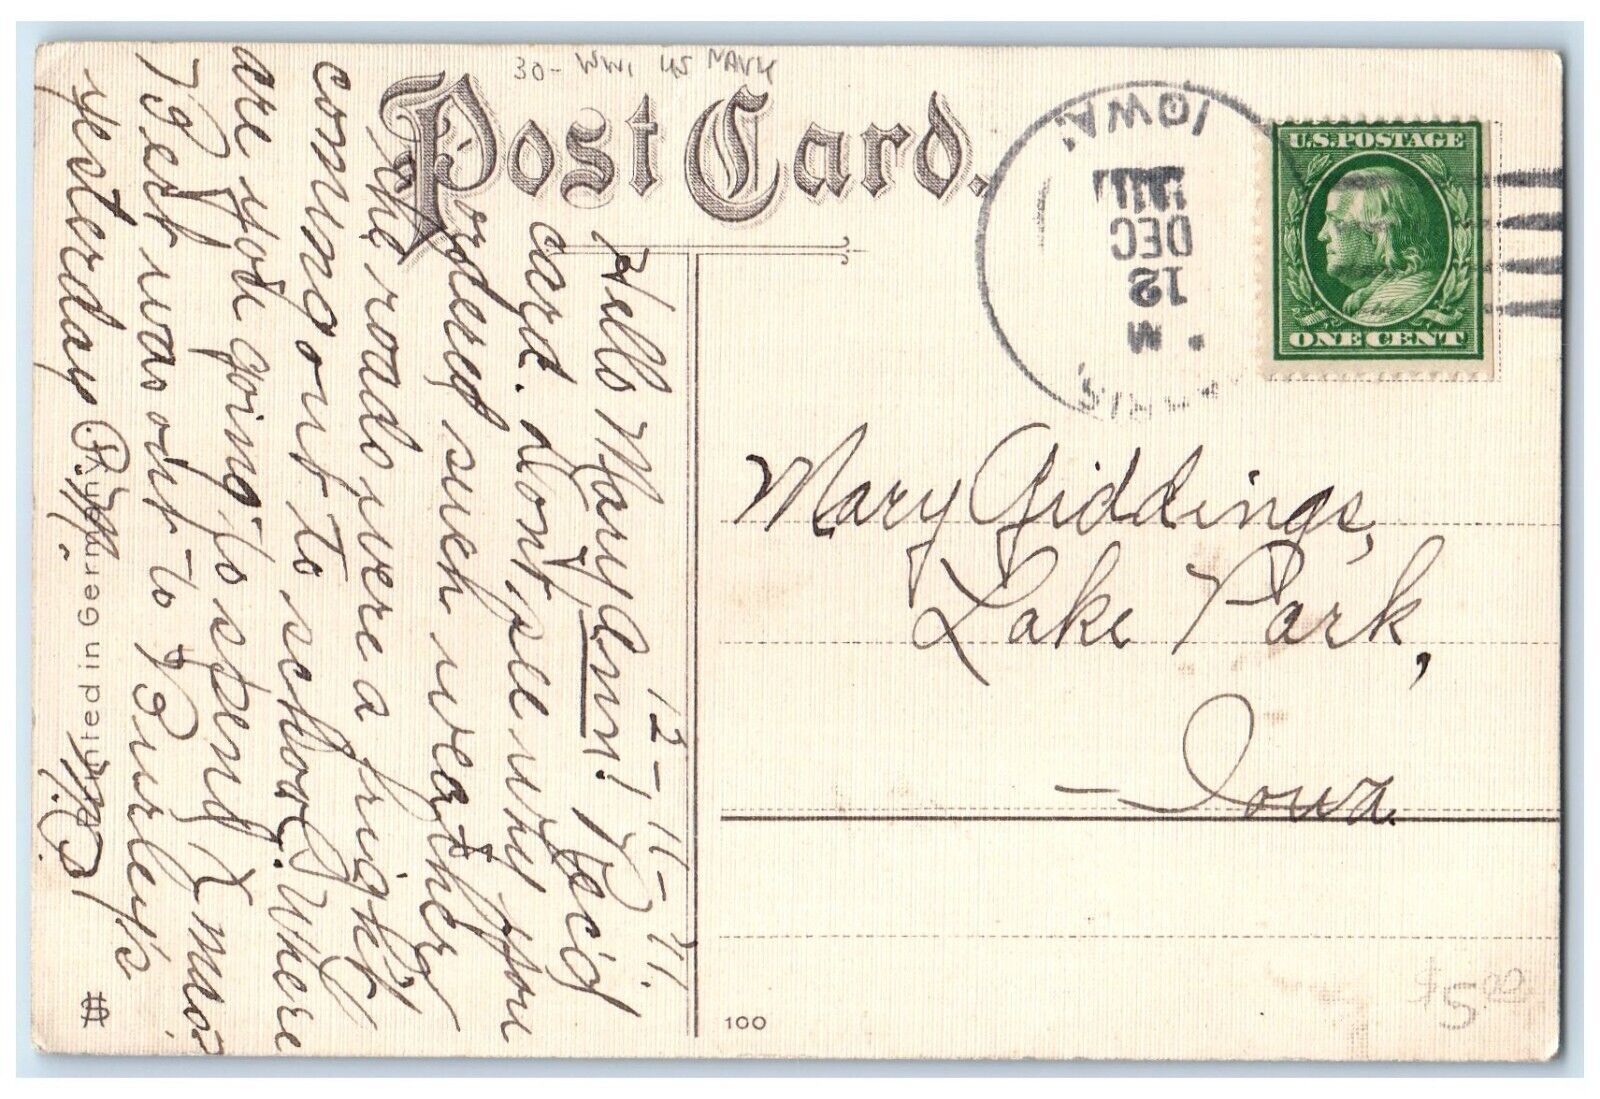 30- WWI US NAVY
Post Card.
IOWA.
1911
DEC
12
M
U.S. POSTAGE
ONE CENT
12-11-'11.
Hello Mary Ann! Rec'd
card. Don't see why you
ordered such weather
the roads were a fright
coming out to school. Where
are you going to spend Xmas?
Bert was out to Burley's
yesterday P.M.
M.B.
Printed in Germany
Mary Giddings,
Lake Park,
Iowa.
100
$5.00